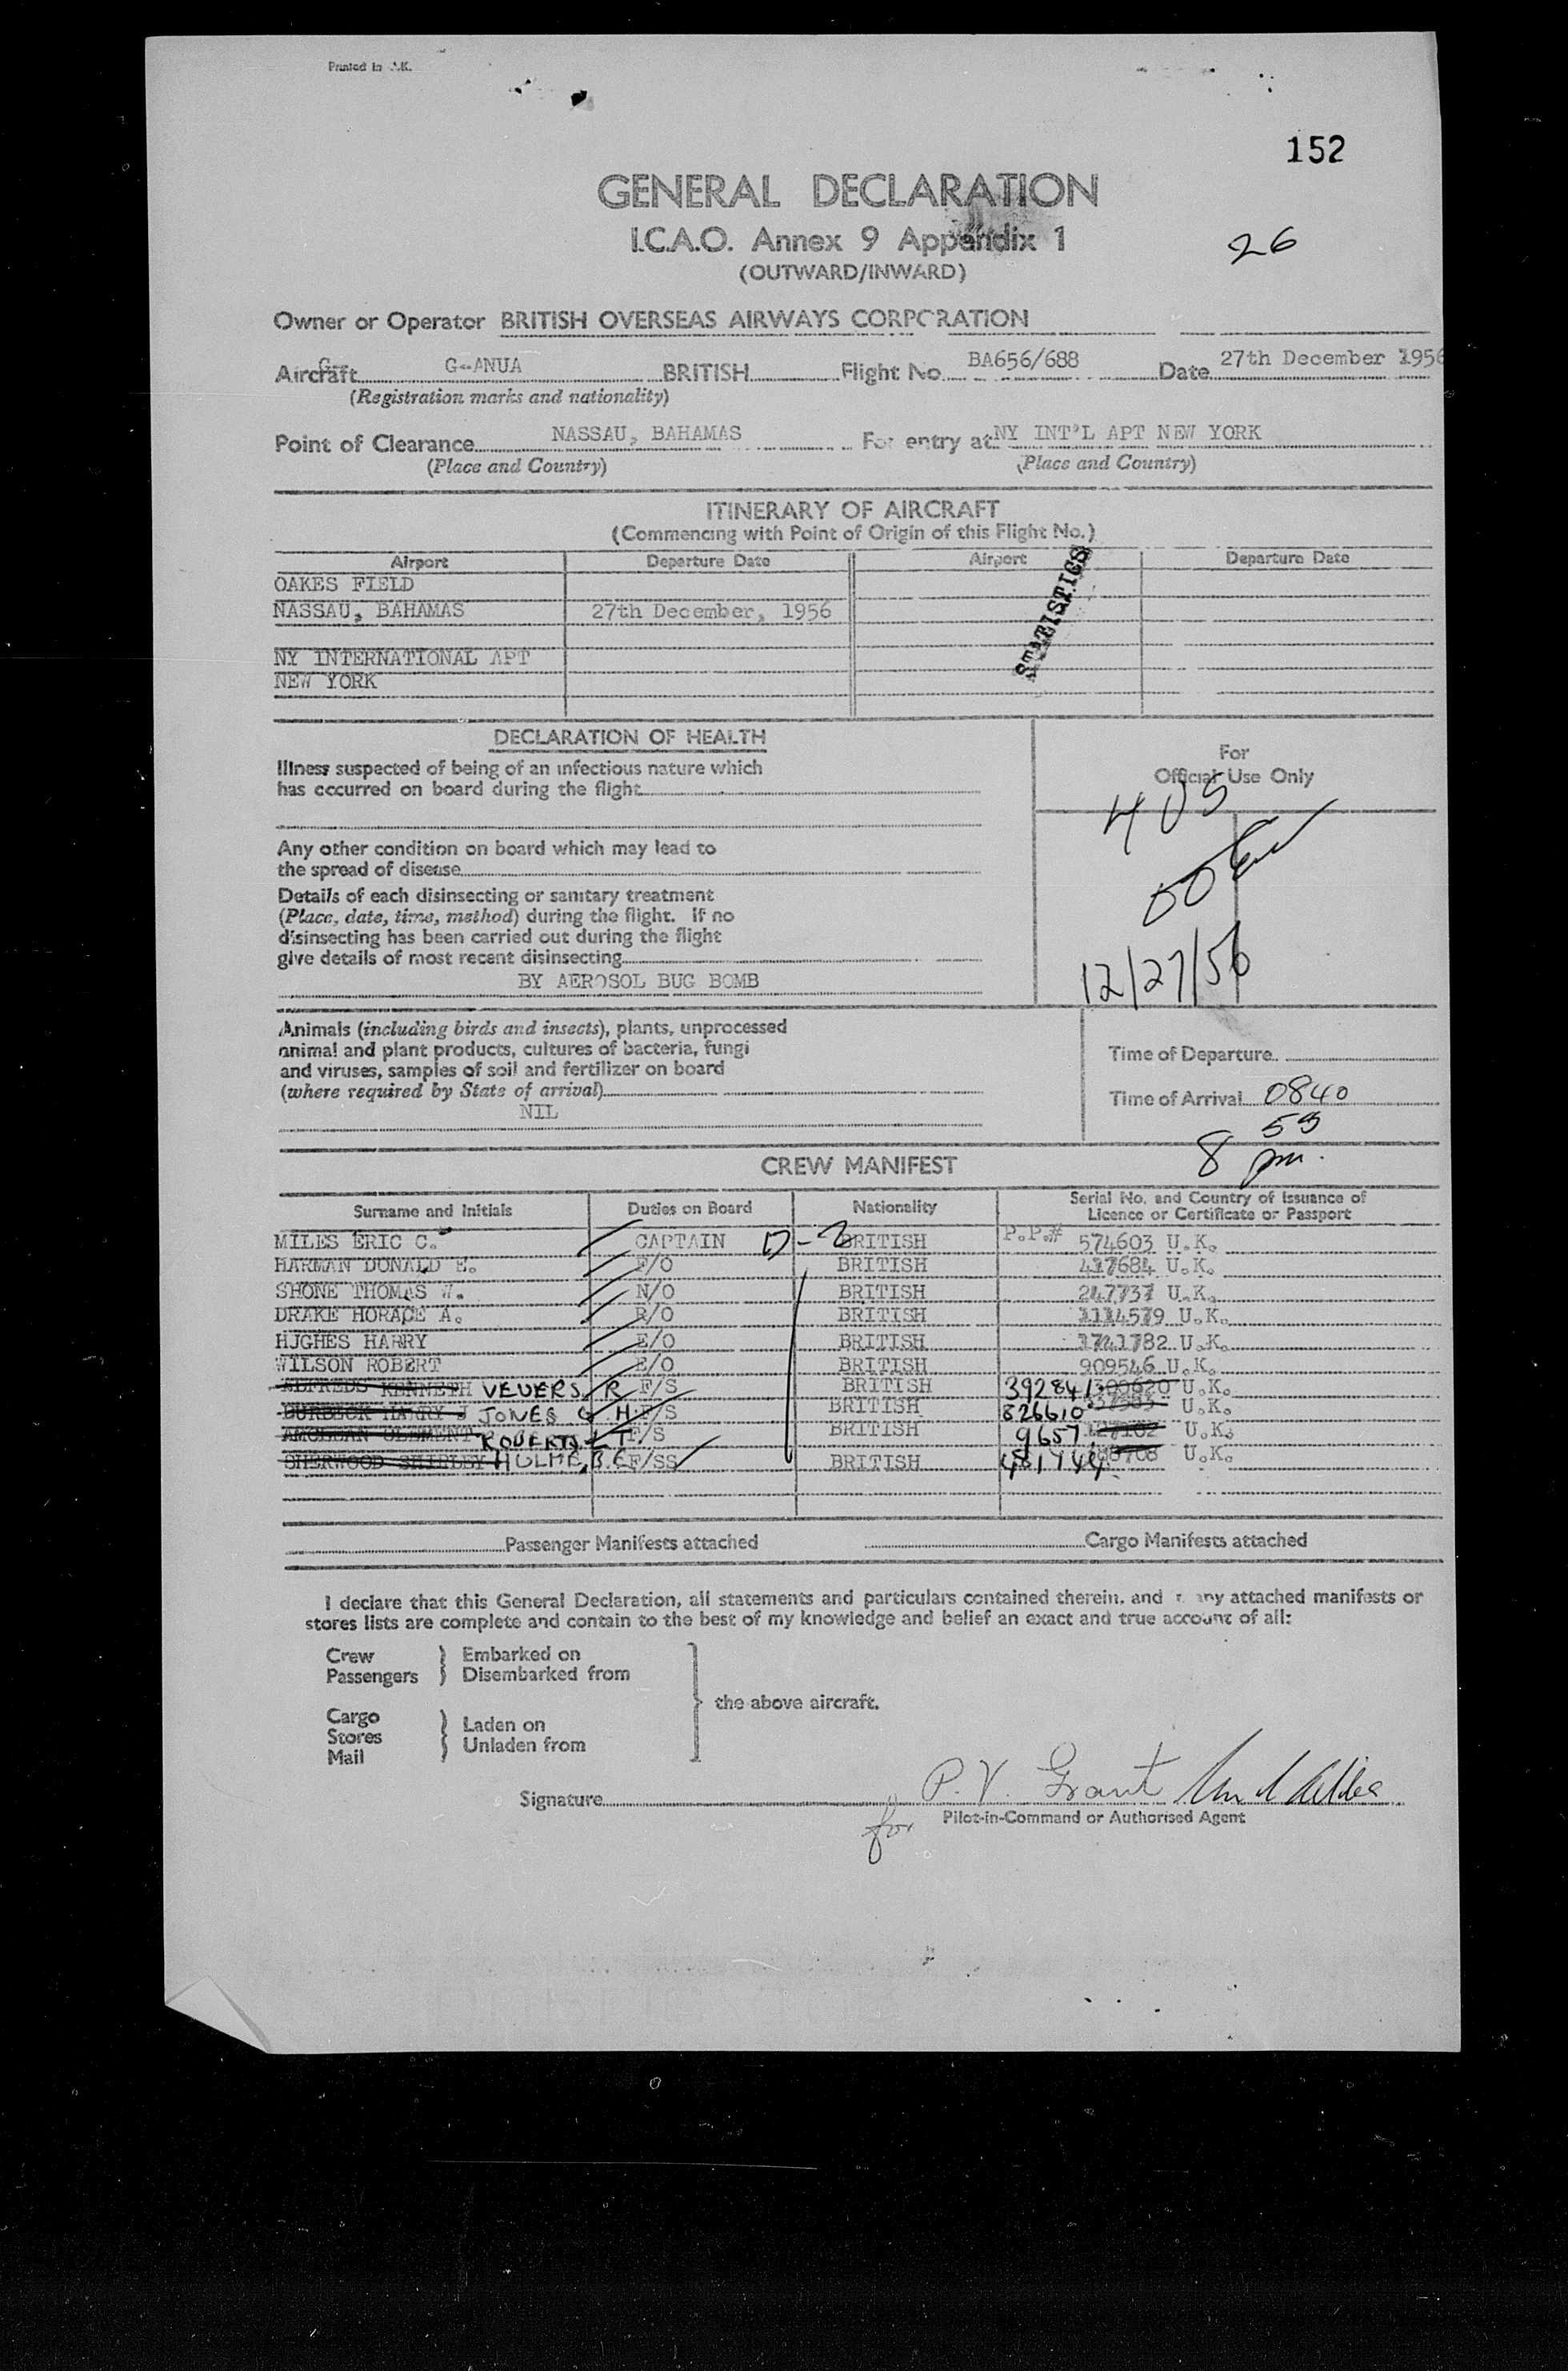 Printed in U.K.
152
GENERAL DECLARATION
I.C.A.O. Annex 9 Appendix 1
26
(OUTWARD/INWARD)
Owner or Operator BRITISH OVERSEAS AIRWAYS CORPORATION
Aircraft G-ANUA BRITISH Flight No. BA656/688 Date 27th December 1956
(Registration marks and nationality)
Point of Clearance NASSAU, BAHAMAS For entry at NY INT'L APT NEW YORK
(Place and Country) (Place and Country)
ITINERARY OF AIRCRAFT
(Commencing with Point of Origin of this Flight No.)
Airport Departure Date Airport Departure Date
OAKES FIELD
NASSAU, BAHAMAS 27th December, 1956
STATISTICS
NY INTERNATIONAL APT
NEW YORK
DECLARATION OF HEALTH
For
Official Use Only
Illness suspected of being of an infectious nature which
has occurred on board during the flight
Any other condition on board which may lead to
the spread of disease
Details of each disinsecting or sanitary treatment
(Place, date, time, method) during the flight. If no
disinsecting has been carried out during the flight
give details of most recent disinsecting
BY AEROSOL BUG BOMB
12/27/56
Animals (including birds and insects), plants, unprocessed
animal and plant products, cultures of bacteria, fungi
and viruses, samples of soil and fertilizer on board
(where required by State of arrival)
NIL
Time of Departure
Time of Arrival 0840
8 59
pm.
CREW MANIFEST
Surname and Initials Duties on Board Nationality Serial No. and Country of Issuance of
Licence or Certificate or Passport
MILES ERIC C. CAPTAIN D-2 BRITISH P.P.# 574603 U.K.
HARMAN DONALD E. F/O BRITISH 417684 U.K.
SHONE THOMAS W. N/O BRITISH 247737 U.K.
DRAKE HORACE A. R/O BRITISH 1114579 U.K.
HJGHES HARRY E/O BRITISH 1741782 U.K.
WILSON ROBERT E/O BRITISH 909546 U.K.
ALFREDS KENNETH VEVERS R F/S BRITISH 392841 300620 U.K.
JONES G H. F/S BRITISH 826610 U.K.
ROBERTS L T F/S BRITISH 9657 U.K.
SHERWOOD SHIRLEY HULME, B.E F/SS BRITISH 481744 U.K.
Passenger Manifests attached Cargo Manifests attached
I declare that this General Declaration, all statements and particulars contained therein, and any attached manifests or
stores lists are complete and contain to the best of my knowledge and belief an exact and true account of all:
Crew Embarked on
Passengers Disembarked from
the above aircraft.
Cargo
Stores Laden on
Mail Unladen from
Signature P. V. Grant
for Pilot-in-Command or Authorised Agent